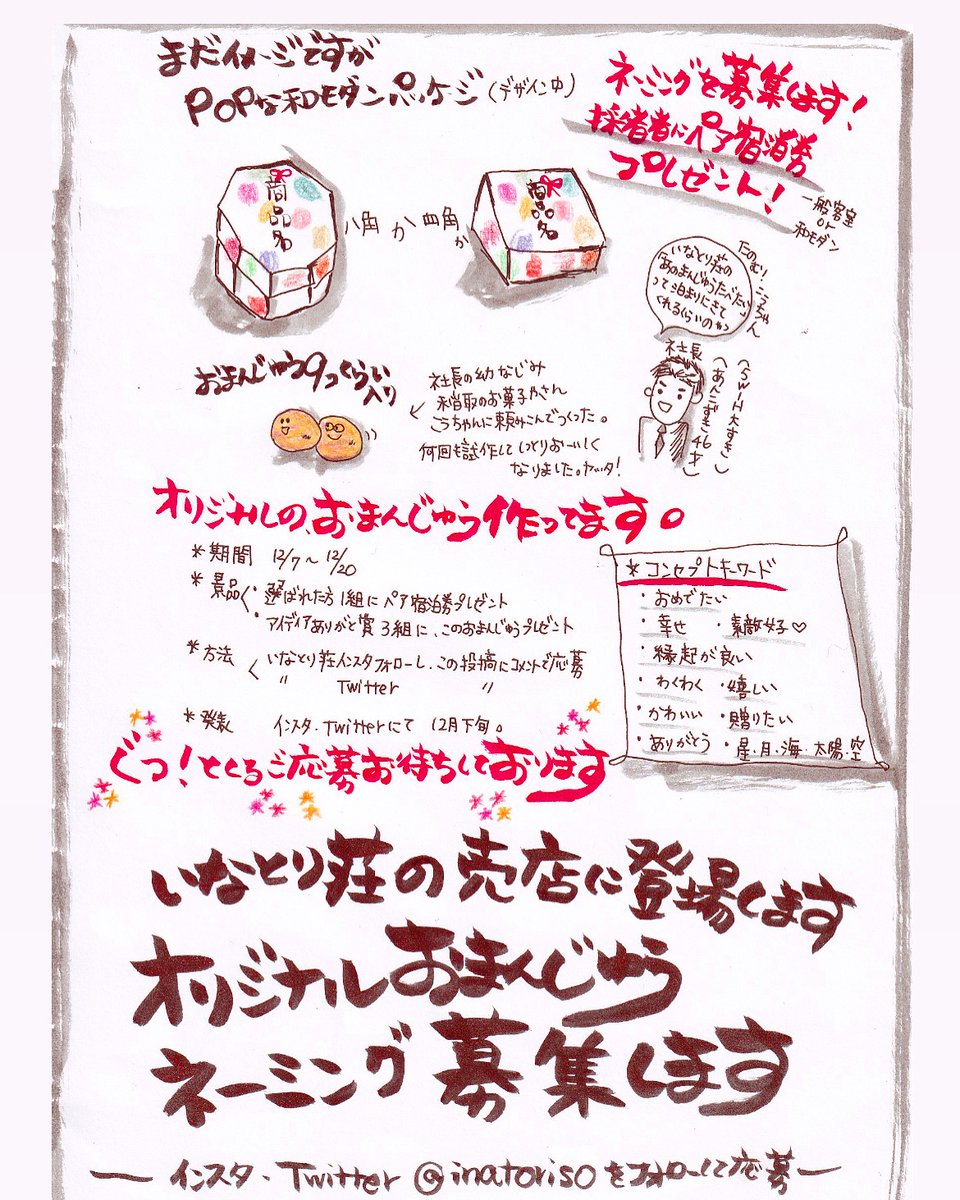 まだイメージですが
POPな和モダンパッケージ(デザイン中)
ネーミングを募集します!
採用者にペア宿泊券
プレゼント!
一般客室
or
和モダン
商品名
八角か四角か
商品名
たのむよ、こうちゃん
いなとり荘の
「あのまんじゅうたべたい」
って泊まりにきて
くれるくらいのやつ
社長
(SW-H大すき)
(あんこずき46才)
おまんじゅう9つくらい
入り
社長の幼なじみ
稲取のお菓子やさん
こうちゃんに頼みこんでつくった。
何回も試作してしっとりおーいしく
なりました。ヤッタ!
オリジナルの、おまんじゅう作ってます。
*期間 12/7~12/20
*景品 ・選ばれた方1組にペア宿泊券プレゼント
・アイディアありがと賞3組に、このおまんじゅうプレゼント
*方法 いなとり荘インスタフォローし、この投稿にコメントで応募
〃 Twitter 〃
*発表 インスタ・Twitterにて 12月下旬。
*コンセプトキーワード
・おめでたい
・幸せ ・素敵女子♡
・縁起が良い
・わくわく ・嬉しい
・かわいい ・贈りたい
・ありがとう ・星・月・海・太陽・空
ぐっ!とくるご応募お待ちしております
いなとり荘の売店に登場します
オリジナルおまんじゅう
ネーミング募集します
インスタ・Twitter @inatorisoをフォローして応募